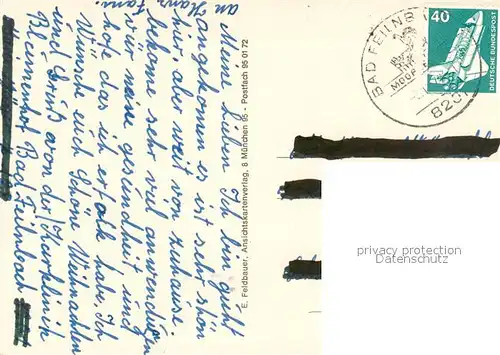 meine Lieben Ich bin guht
angekomen es ist sehr schön
hier aber weit von zuhause.
hab mir sehr viel anwendungen
für meine gesundheit und
hofe das ich erfolk habe. Ich
Wünsche euch Schöne Weihnachten
und Grüß avon der Kurklinik
Blumenhof Bad Feilnbach
an Hans Fam.
E. Feldbauer, Ansichtskartenverlag, 8 München 95 - Postfach 95 01 72
BAD FEILNB
MOOR
820
40
DEUTSCHE BUNDESPOST
privacy protection
Datenschutz